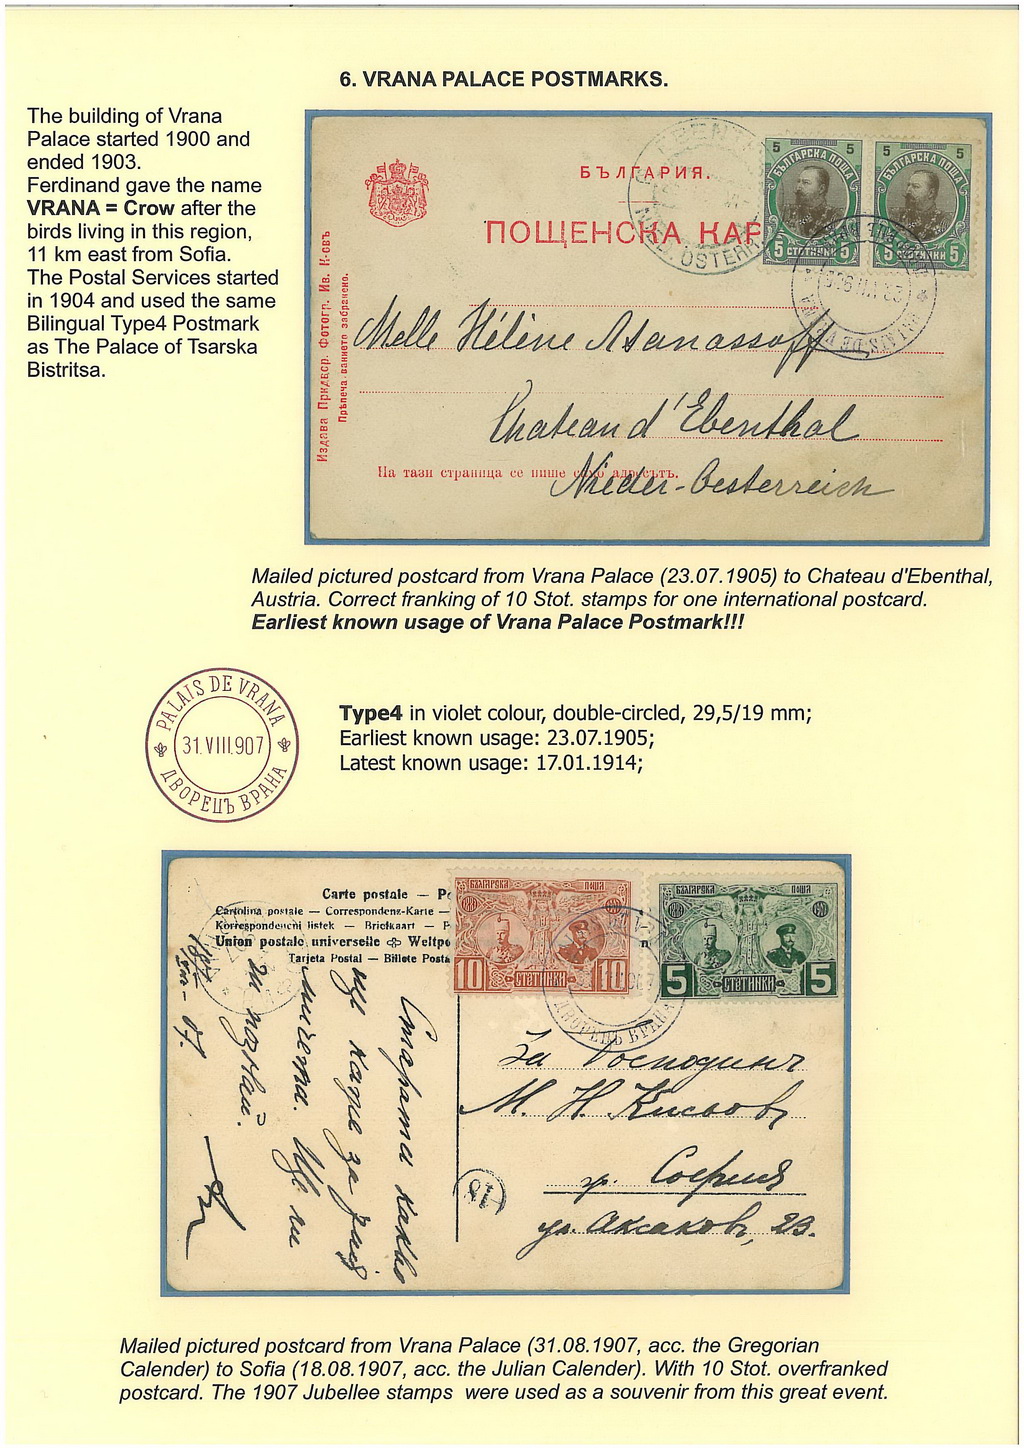 6. VRANA PALACE POSTMARKS.
The building of Vrana
Palace started 1900 and
ended 1903.
Ferdinand gave the name
VRANA = Crow after the
birds living in this region,
11 km east from Sofia.
The Postal Services started
in 1904 and used the same
Bilingual Type4 Postmark
as The Palace of Tsarska
Bistritsa.
БЪЛГАРИЯ.
ПОЩЕНСКА КАР
5 5 5 5
БЪЛГАРСКА ПОЩА БЪЛГАРСКА ПОЩА
5 СТОТИНКИ 5 5 СТОТИНКИ 5
NIED. ÖSTERR
PALAIS DE
Издава Придвср. Фотогр. Ив. К-овъ
Прѣпеча.ванието забранено.
Melle Hélène Asanassoff
Chateau d'Ebenthal
На тази страница се пише само адресътъ.
Nieder-Oesterreich
Mailed pictured postcard from Vrana Palace (23.07.1905) to Chateau d'Ebenthal,
Austria. Correct franking of 10 Stot. stamps for one international postcard.
Earliest known usage of Vrana Palace Postmark!!!
PALAIS DE VRANA
31.VIII.907
ДВОРЕЦЪ ВРАНА
Type4 in violet colour, double-circled, 29,5/19 mm;
Earliest known usage: 23.07.1905;
Latest known usage: 17.01.1914;
Carte postale — Po
Cartolina postale — Correspondenz-Karte —
Korrespondenční lístek — Briefkaart — P
Union postale universelle Weltpo
Tarjeta Postal — Billete Posta
БЪЛГАРСКА ПОЩА
10 СТОТИНКИ 10
БЪЛГАРСКА ПОЩА
5 СТОТИНКИ 5
ДВОРЕЦЪ ВРАНА
За Господинъ
М. Н.
гр. София
ул. Аксаковъ, 23.
18
Mailed pictured postcard from Vrana Palace (31.08.1907, acc. the Gregorian
Calender) to Sofia (18.08.1907, acc. the Julian Calender). With 10 Stot. overfranked
postcard. The 1907 Jubellee stamps were used as a souvenir from this great event.